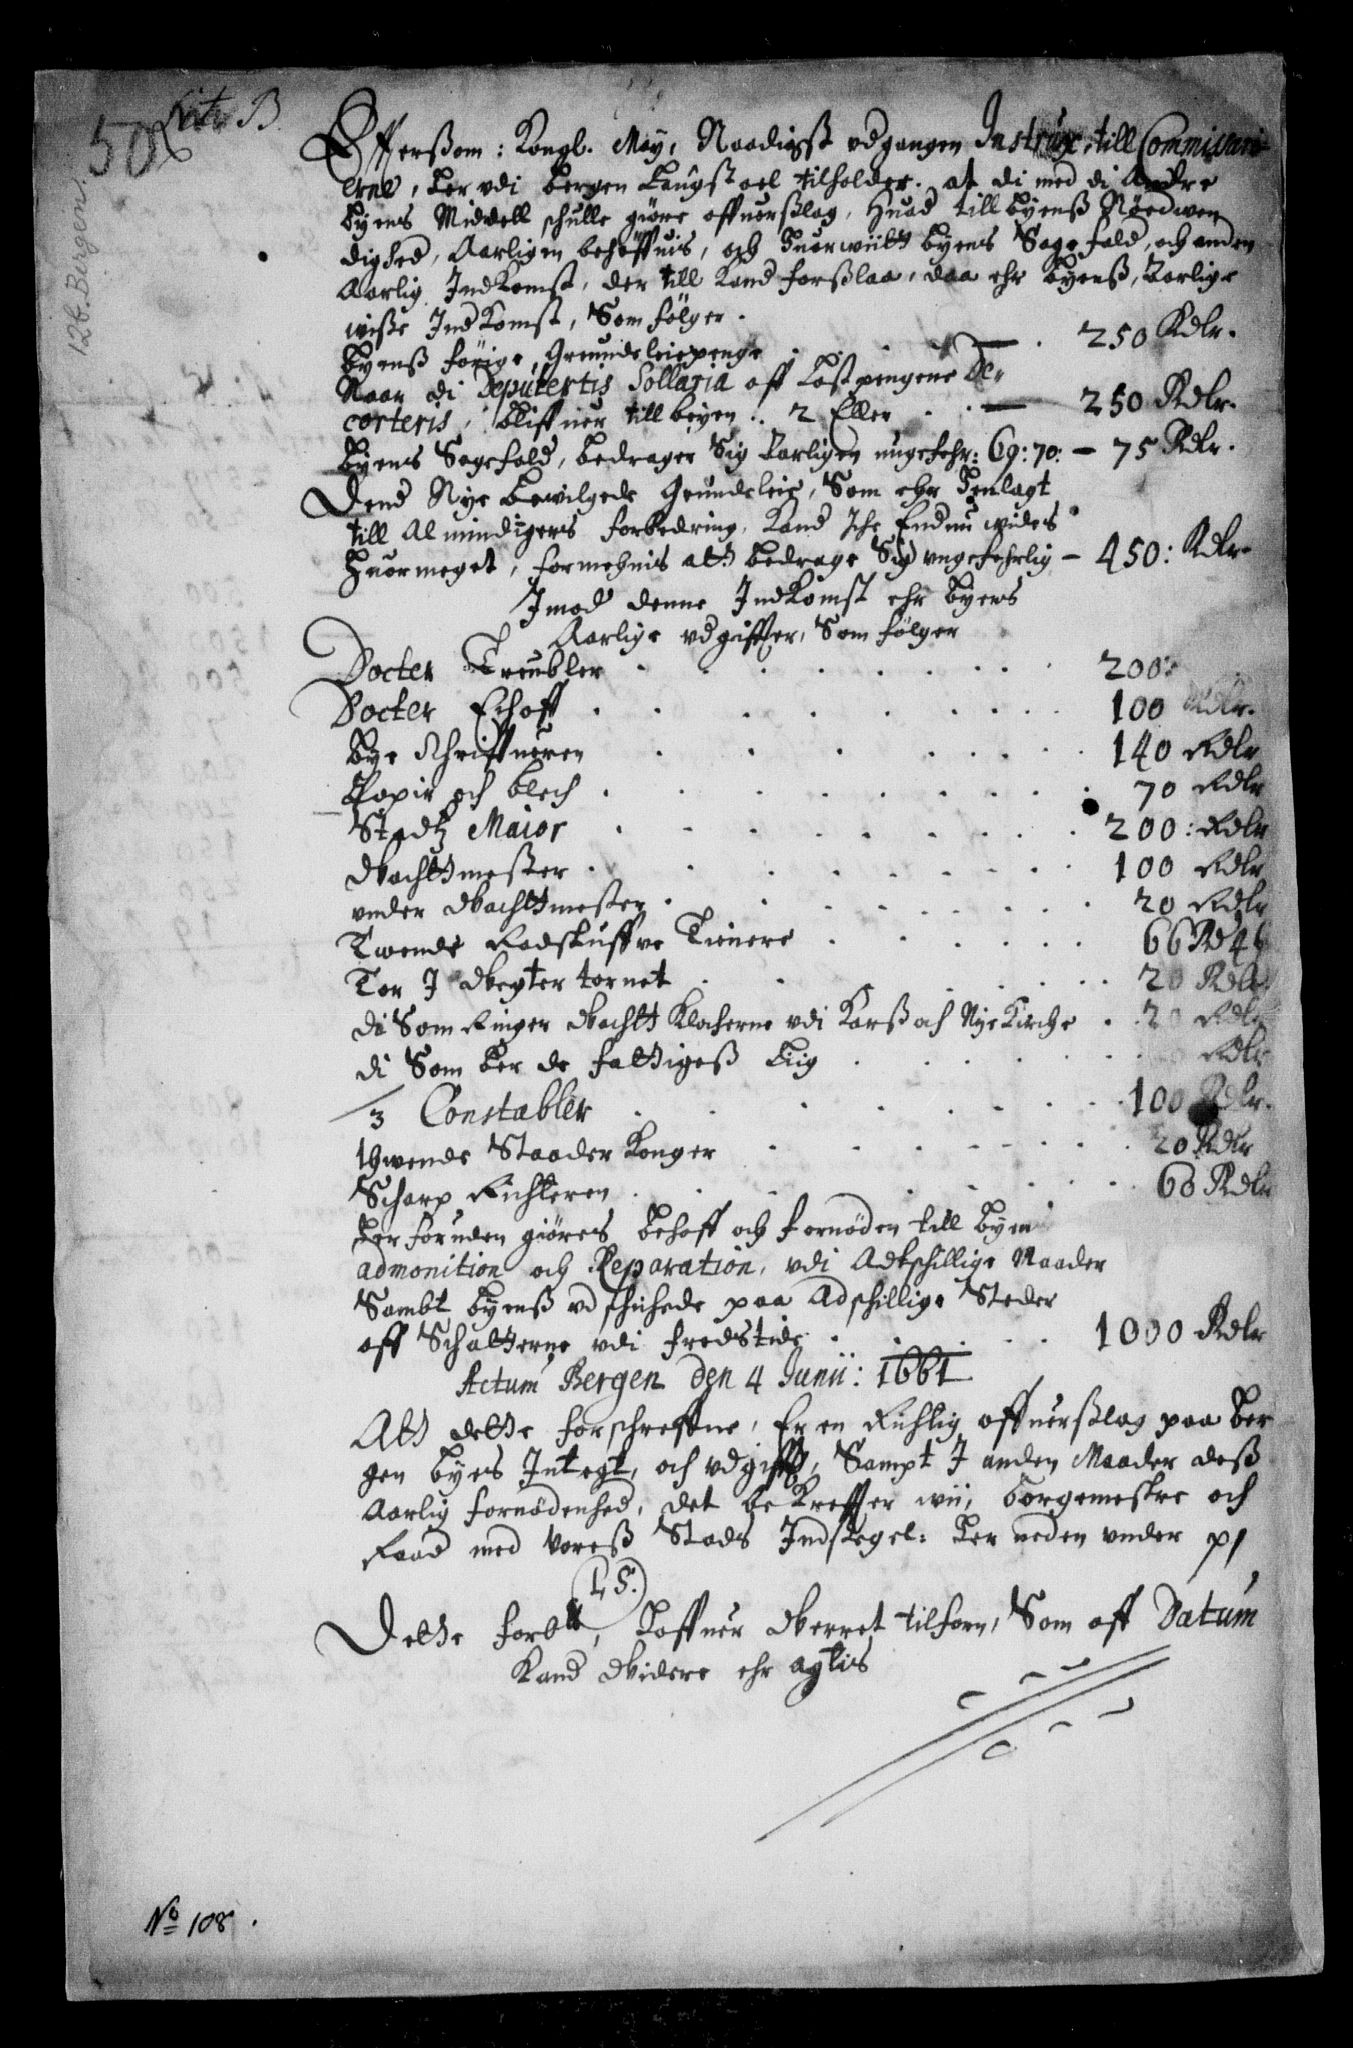 Lit. B.
50
126. Bergen.
Effterßom: Kongl. May: Naadigst udgangen Instrux, till Commissari-
erne, her udi Bergen Laugstoel tilholder. at di med di Andre
byens Middell schulle giøre offuerßlag, Huad till byenß Nøedwen
dighed, Aarligen behøffuis, och huorwiitt byens Sagefald, och anden
Aarlig Indkomst, der till kand forßlaa, daa ehr byenß, Aarlige
wisse Indkomst, Som følger.
byenß forige, Grundeleiepenge . . . . — . 250 Rdlr.
Naar di Deputertis Sollaria aff Lastpengene De-
corteris, bliffuer till byen . . 2 Eller . . — 250 Rdlr.
Byens Sagefald, bedrager Sig Aarligen ungefehr: 69: 70: — 75 Rdlr.
Dend Nye bewilgede Grundeleie, Som ehr henlagt
till Almindigers forbedring, kand Iche Endnu wides
Huormeget, formehnis att bedrage Sig ungefehrlig — 450: Rdlr.
Imod denne Indkomst ehr byens
Aarlige udgiffter, Som følger
Docter Treubler . . . . . . . 200:
Docter Echoff . . . . . . . . 100 Rdlr.
Bye Schriffueren . . . . . . . 140 Rdlr
Papir och blech . . . . . . . . 70 Rdlr
Stadtz Maior . . . . . . . . 200: Rdlr
Wachttmester . . . . . . . . 100 Rdlr
under Wachttmester . . . . . . . . 20 Rdlr
Twende Raadstuffue Tienere . . . . . . 66 Rd 4
Tor I Wegter tornet . . . . . . 20 Rdlr
di Som Ringer Wachtt Klocherne udi Karß och Nye Kirche . . 20 Rdlr
di Som ber de fattigeß Liig . . . . . . Rdlr
3 Constabler . . . . . . . . 100 Rdlr.
thwende Staader Konger . . . . . . . 20 Rdlr
Scharp Richteren . . . . . . . . 60 Rdlr
Herforuden giøres behoff och fornøden till byens
admonition och Reparation, udi Adschillige Maader
Sambt byenß udschichede paa Adschillige Steder
off Schatterne udi fredstide . . . . . . 1000 Rdlr
Actum Bergen den 4 Junii: 1661
Att dette forschreffne, Er en Richtig offuerßlag paa Ber
gen byes Integt, och udgifft, Sampt I anden Maader deß
Aarlig fornødenhed, det bekreffter wii, Borgemestre och
Raad med voreß Stads Indsegel: her neden under p/
(L. S.)
Dette forbtt, haffuer Werret tilforn, Som aff Datum
Kand Widere ehr agtis
No 108.